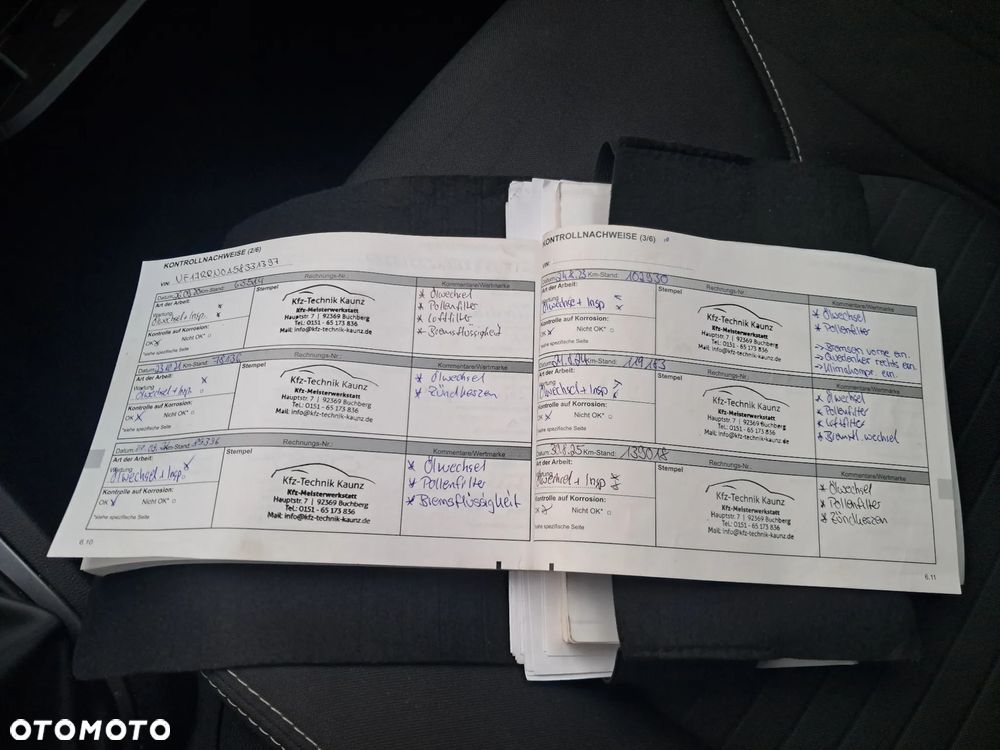 KONTROLLNACHWEISE (2/6)
VIN:
Rechnungs-Nr.:
Datum: Km-Stand:
Art der Arbeit:
Wartung
Ölwechsel + Insp.
Kontrolle auf Korrosion:
OK x Nicht OK*
*siehe spezifische Seite
Stempel
Kfz-Technik Kaunz
Kfz-Meisterwerkstatt
Hauptstr. 7 | 92369 Buchberg
Tel.: 0151 - 65 173 836
Mail: info@kfz-technik-kaunz.de
Kommentare/Wertmarke
* Ölwechsel
* Pollenfilter
* Luftfilter
* Bremsflüssigkeit
Rechnungs-Nr.:
Datum: Km-Stand: 78136
Art der Arbeit:
Wartung
Ölwechsel + Insp
Kontrolle auf Korrosion:
OK x Nicht OK*
*siehe spezifische Seite
Stempel
Kfz-Technik Kaunz
Kfz-Meisterwerkstatt
Hauptstr. 7 | 92369 Buchberg
Tel.: 0151 - 65 173 836
Mail: info@kfz-technik-kaunz.de
Kommentare/Wertmarke
* Ölwechsel
* Zündkerzen
Rechnungs-Nr.:
Datum: Km-Stand:
Art der Arbeit:
Wartung
Ölwechsel + Insp
Kontrolle auf Korrosion:
OK x Nicht OK*
*siehe spezifische Seite
Stempel
Kfz-Technik Kaunz
Kfz-Meisterwerkstatt
Hauptstr. 7 | 92369 Buchberg
Tel.: 0151 - 65 173 836
Mail: info@kfz-technik-kaunz.de
Kommentare/Wertmarke
* Ölwechsel
* Pollenfilter
* Bremsflüssigkeit
6.10
KONTROLLNACHWEISE (3/6)
VIN:
Rechnungs-Nr.:
Datum: 24.8.23 Km-Stand: 102930
Art der Arbeit:
Wartung
Ölwechsel + Insp
Kontrolle auf Korrosion:
OK x Nicht OK*
*siehe spezifische Seite
Stempel
Kfz-Technik Kaunz
Kfz-Meisterwerkstatt
Hauptstr. 7 | 92369 Buchberg
Tel.: 0151 - 65 173 836
Mail: info@kfz-technik-kaunz.de
Kommentare/Wertmarke
* Ölwechsel
* Pollenfilter
-> Bremsen vorne ern.
-> Querlenker rechts ern.
-> Klimakompr. ern.
Rechnungs-Nr.:
Datum: Km-Stand: 119153
Art der Arbeit:
Wartung
Ölwechsel + Insp
Kontrolle auf Korrosion:
OK x Nicht OK*
*siehe spezifische Seite
Stempel
Kfz-Technik Kaunz
Kfz-Meisterwerkstatt
Hauptstr. 7 | 92369 Buchberg
Tel.: 0151 - 65 173 836
Mail: info@kfz-technik-kaunz.de
Kommentare/Wertmarke
* Ölwechsel
* Pollenfilter
* Luftfilter
* Bremsfl. wechsel
Rechnungs-Nr.:
Datum: Km-Stand: 139018
Art der Arbeit:
Ölwechsel + Insp
Kontrolle auf Korrosion:
OK x Nicht OK*
*siehe spezifische Seite
Stempel
Kfz-Technik Kaunz
Kfz-Meisterwerkstatt
Hauptstr. 7 | 92369 Buchberg
Tel.: 0151 - 65 173 836
Mail: info@kfz-technik-kaunz.de
Kommentare/Wertmarke
* Ölwechsel
* Pollenfilter
* Zündkerzen
6.11
OTOMOTO